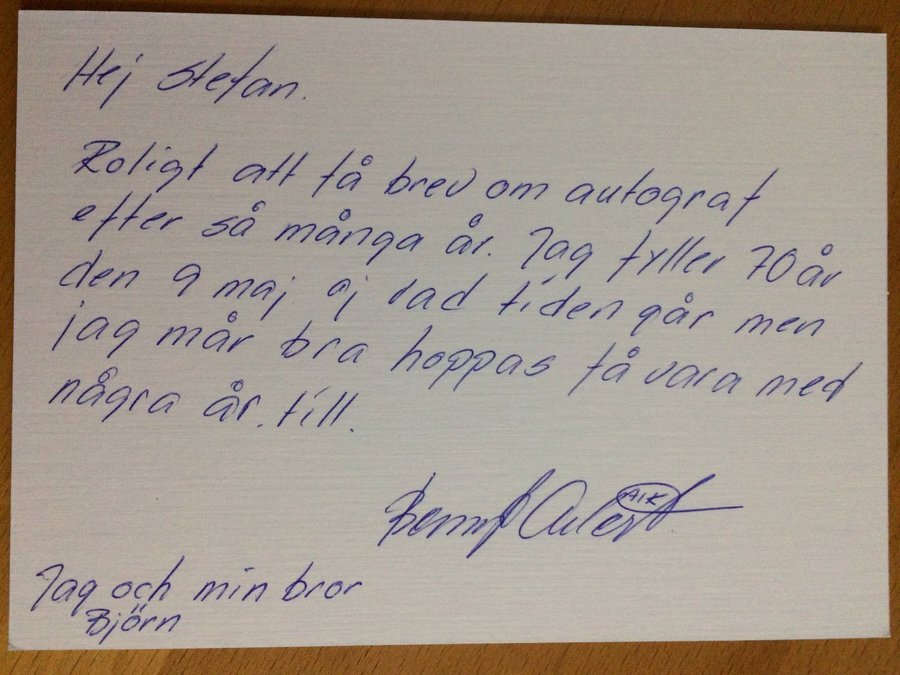 Hej Stefan.
Roligt att få brev om autograf
efter så många år. Jag fyller 70 år
den 9 maj oj vad tiden går men
jag mår bra hoppas få vara med
några år. till.
AIK
Jag och min bror
Björn